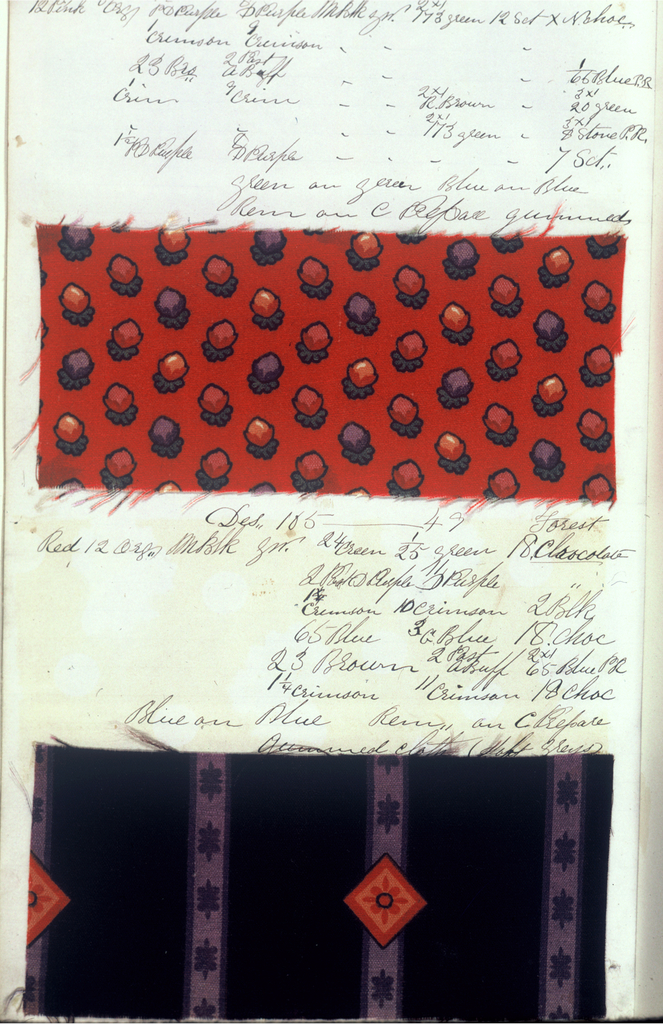 12 Pink Org P Purple D Purple M Blk gr. 2x1 73 green 12 Sct X N choc
1 Crimson 9 Crimson " " "
23 Brs 2 Past A Buff " " 1 65 Blue P.R.
1 Crim 9 Crim " " 2x1 R. Brown " 3x1 20 green
" " " 2x1 73 green " 3x1 D Stone P.R.
P Purple D Purple " " " 7 Sct.
green on green Blue on Blue
Rem on C Prepare gummed
Des. 105 — 49 Forest
Red 12 Org. M Blk gr. 24 Green 1 25 green 18 Chocolate
2 Past D Purple 11 D Purple "
1 1/4 Crimson 10 Crimson 2 Blk
65 Blue 3 G. Blue 18 Choc
23 Brown 2 Past A Buff 2x1 65 Blue P.R
1 1/4 Crimson 11 Crimson 18 choc
Blue on Blue Rem. on C. Prepare
Gummed cloth